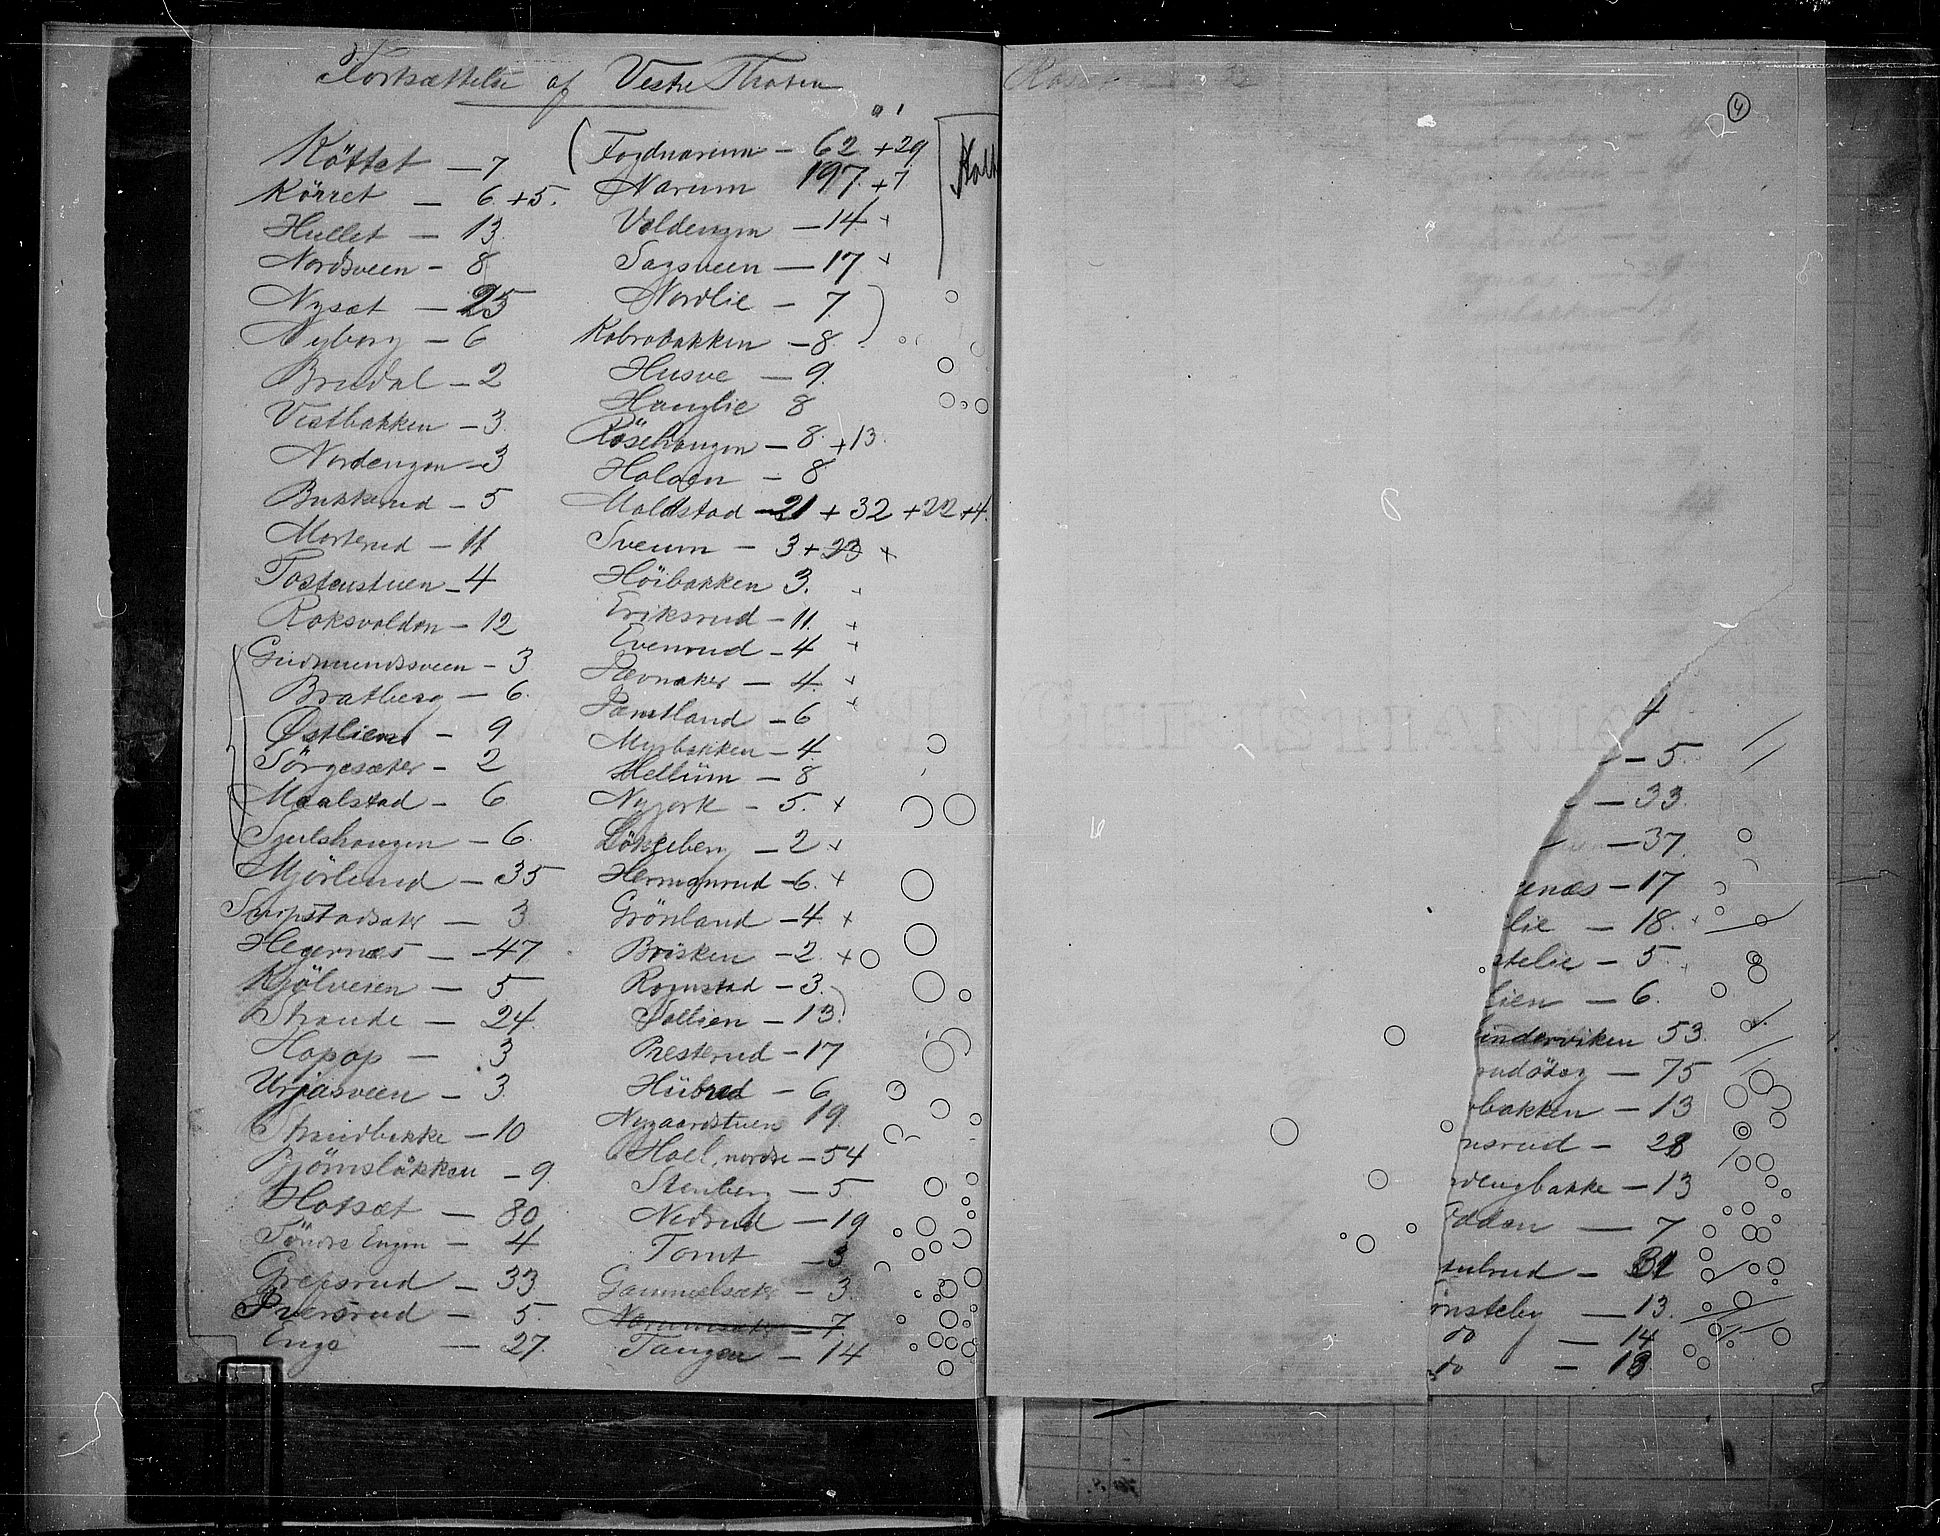 Fortsættelse af Vestre Thoten
Köttet — 7
Körret — 6 + 5.
Hullet — 13
Nordsveen — 8
Nysæt — 25
Nyborg — 6
Brudal — 2
Vestbakken — 3
Nordengen — 3
Bukkerud — 5
Morterud — 11
Tostenstuen — 4
Roksvolden — 12
Gudmundssveen — 3
Bratberg — 6.
Østlien — 9
Sörgesæter — 2
Maalstad — 6
Sjulshaugen — 6.
Mjörlund — 35
3
Hegernæs — 47
Kjölveien — 5
Strande — 24.
Hopop — 3
Urjasveen — 3
Strandbakke — 10
Bjömslökken — 9.
Hotsæt — 80
Söndre Engen — 4
Grefsrud — 33
Sversrud — 5.
Enge — 27.
Fogdnarum — 62 + 29
Narum 197. + 7
Voldengen — 14 +
Sagsveen — 17 +
Nordlie — 7.
Kabrabakken — 8
Husve — 9.
Hauglie 8
Röisehaugen — 8. + 13
Halven — 8
Moldstad — 21 + 32 + 22 + 4.
Sveum — 3 + 23 +
Höibakken 3.
Eriksrud — 11. +
Evenrud — 4 +
Jævnaker — 4. +
Jæmtland — 6 +
Myrbakken — 4.
Hellüm — 8
Nyjork — 5. +
Lökkeberg — 2 +
Hermanrud — 6. +
Grönland — 4 +
Brisken — 2. +
Rognstad — 3.
Sollien — 13.
Presterud — 17
Hübred — 6
Nygaardstuen 19.
Hoel, nordre — 54
Stenberg — 5
Nedrud — 19
Tomt — 3
Gammelsæter — 3.
Narumsæter — 7
Taugen — 14
Holt
4
4
— 5.
— 33.
— 37.
enæs — 17
lie — 18. +
stelie — 5.
lien — 6.
nderviken 53.
rudödeg — 75
bakken — 13
nsrud — 28
dengbakke — 13
Odden — 7
sulrud — 31
önsteby — 13.
do — 14
do — 13